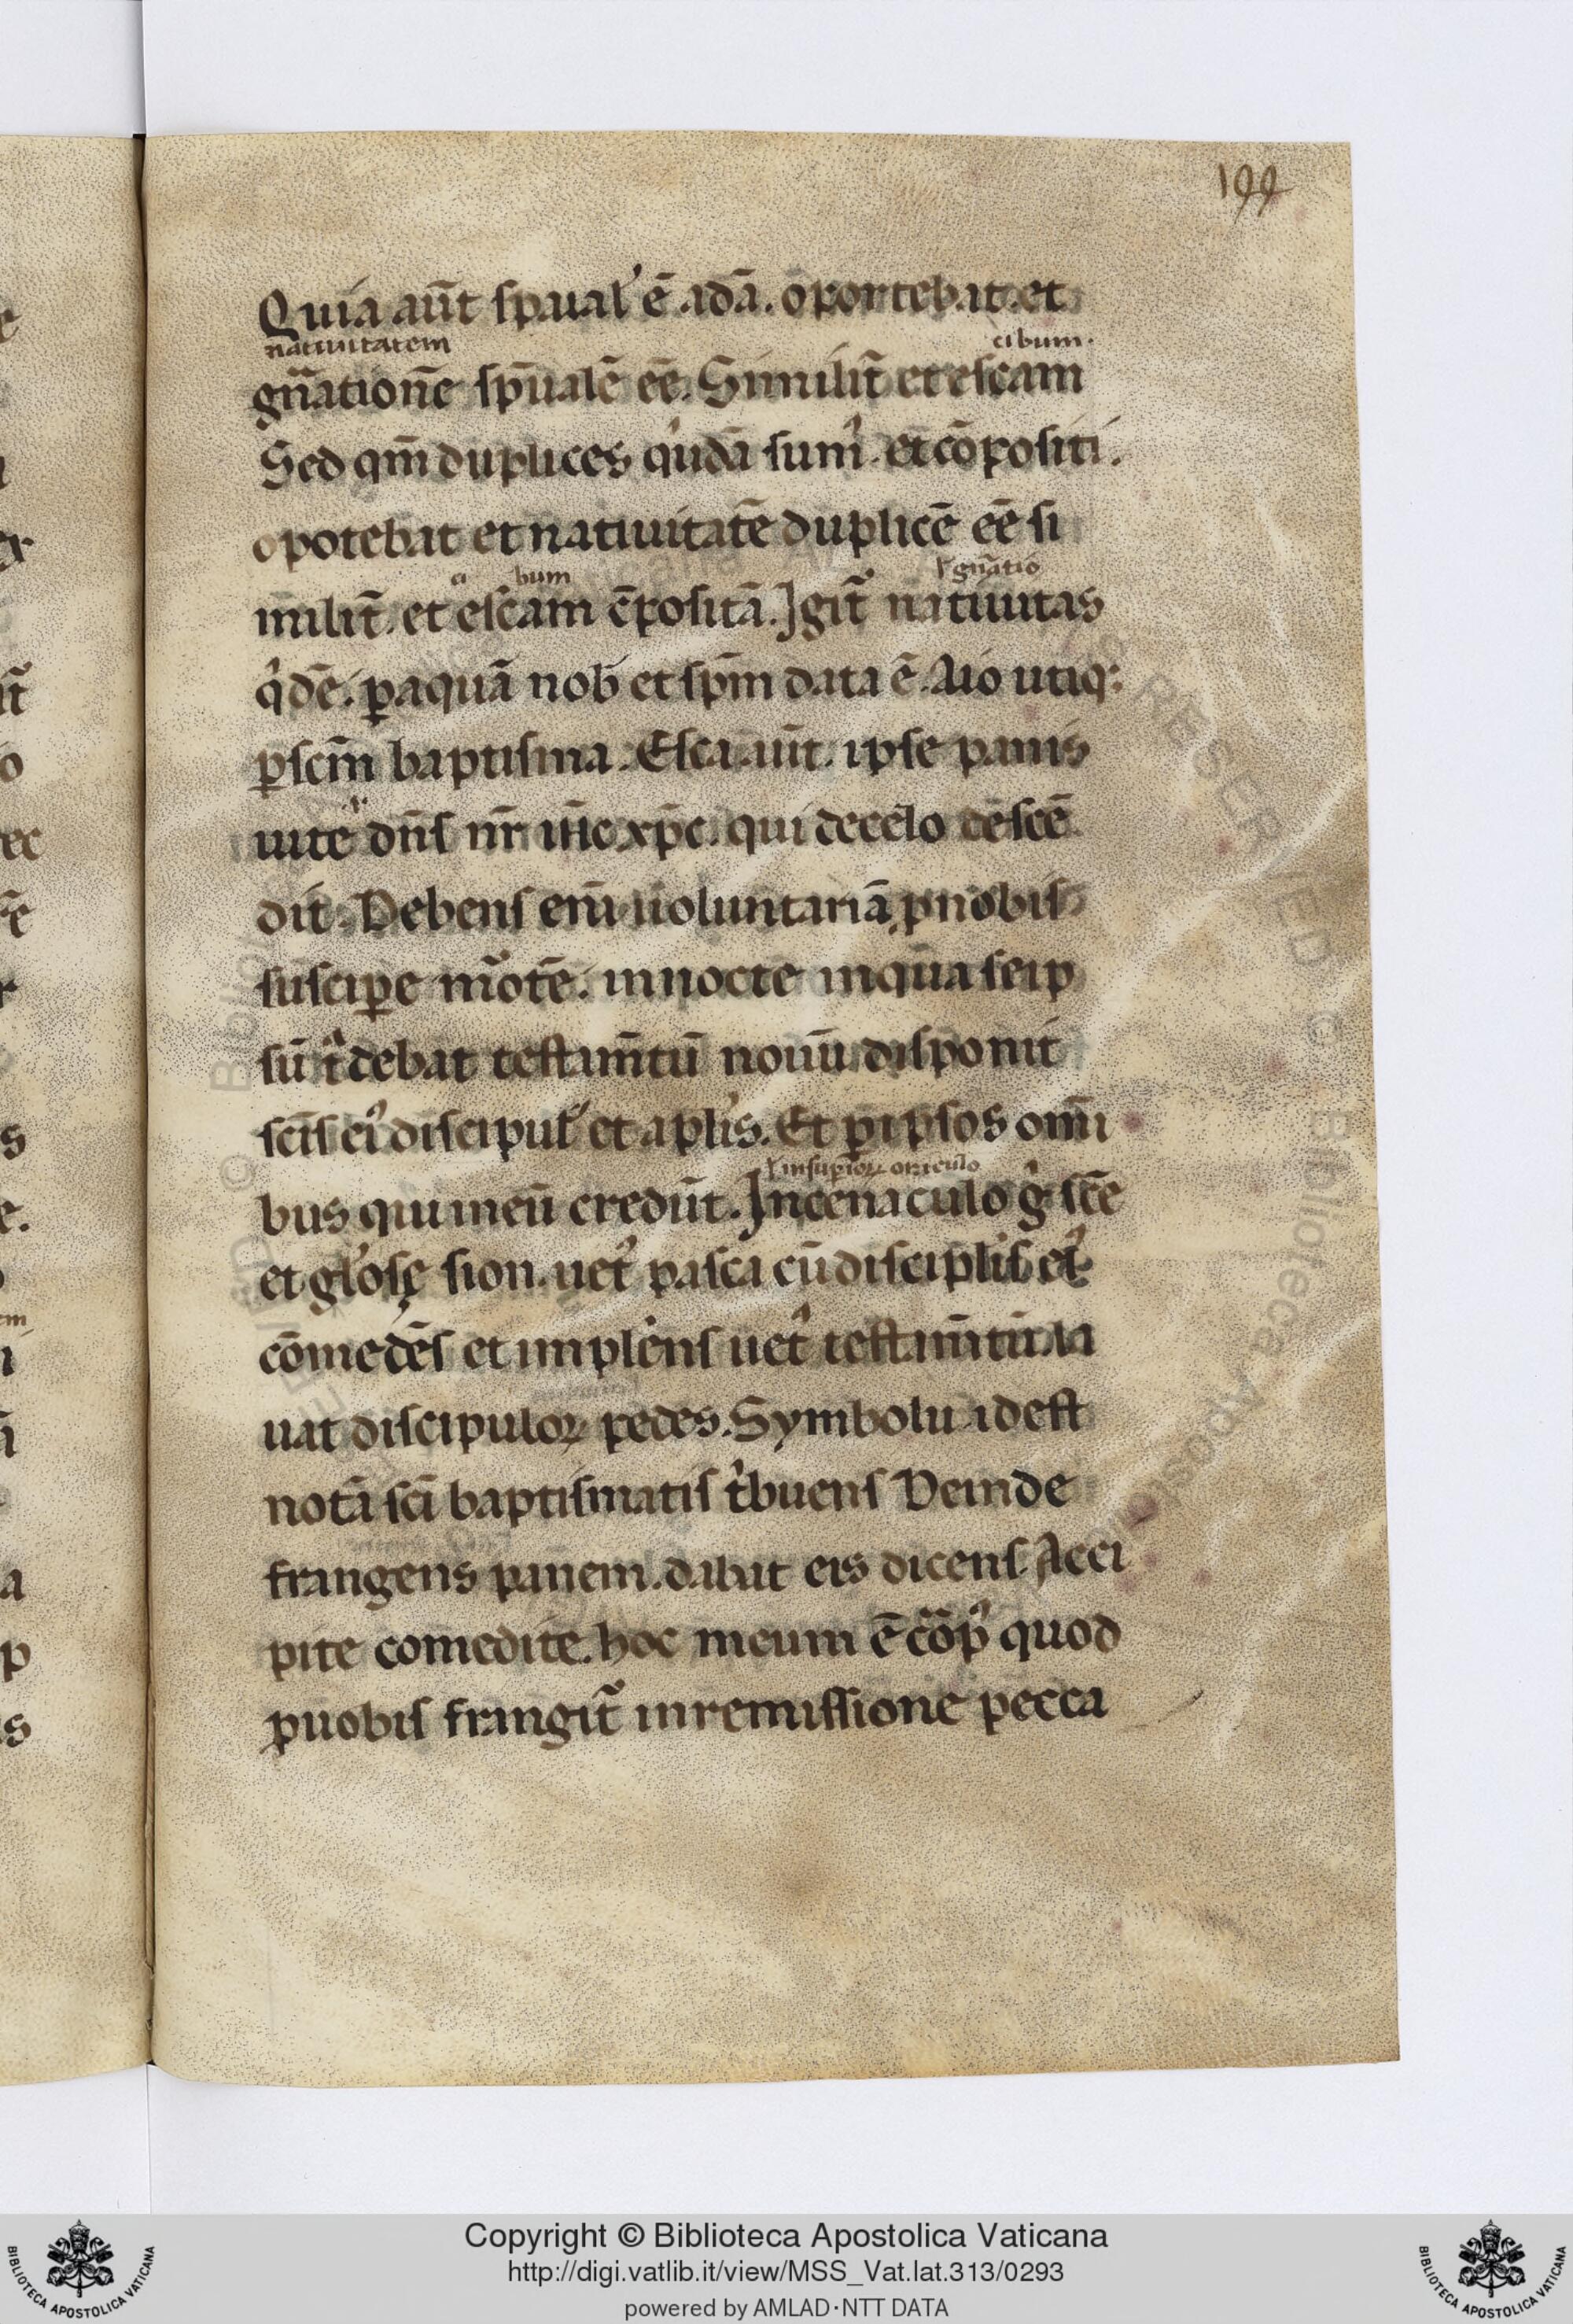 199
Quia aūt spūal' ē adā. oportebat. et
natiuitatem cibum.
gn̄atione spūalē eē. Similit̄ et escam
Sed qm̄ duplices q'dā sum'. et cōpositi.
opotebat et natiuitatē duplicē eē si
ci bum ł gn̄atio
milit̄. et escam c̄positā. Igit̄ natiuitas
q'dē. ꝑ aquā nob' et sp̄m data ē. Aio utiq;
ꝑ sc̄m baptisma. Esca aūt. ipse panis
uite dn̄s nr̄ ih̄c xp̄c. qui de celo descē
dit. Debens eni uoluntariā ꝓ nobis
suscipe mortē. in nocte in qua seip
sū t'debat testam̄tū nouū disponit
sc̄is ei' discipul' et aplis. Et ꝑ ipsos omi
ł in supiorꝝ
bus qui in eū credūt. In cenaculo g' sc̄e
et gl'osę sion. uet' pasca cū disciplis ei'
cōmedēs et implens uet' testam̄tū. la
uat discipulorꝝ pedes. Symbolu idest
notā sc̄i baptismatis t'buens Deinde
frangens panem. dabat eis dicens. Acci
pite comedite. hoc meum ē corp' quod
ꝓ uobis frangit̄ in remissione pecca
Copyright © Biblioteca Apostolica Vaticana
http://digi.vatlib.it/view/MSS_Vat.lat.313/0293
powered by AMLAD·NTT DATA
BIBLIOTECA APOSTOLICA VATICANA
BIBLIOTECA APOSTOLICA VATICANA